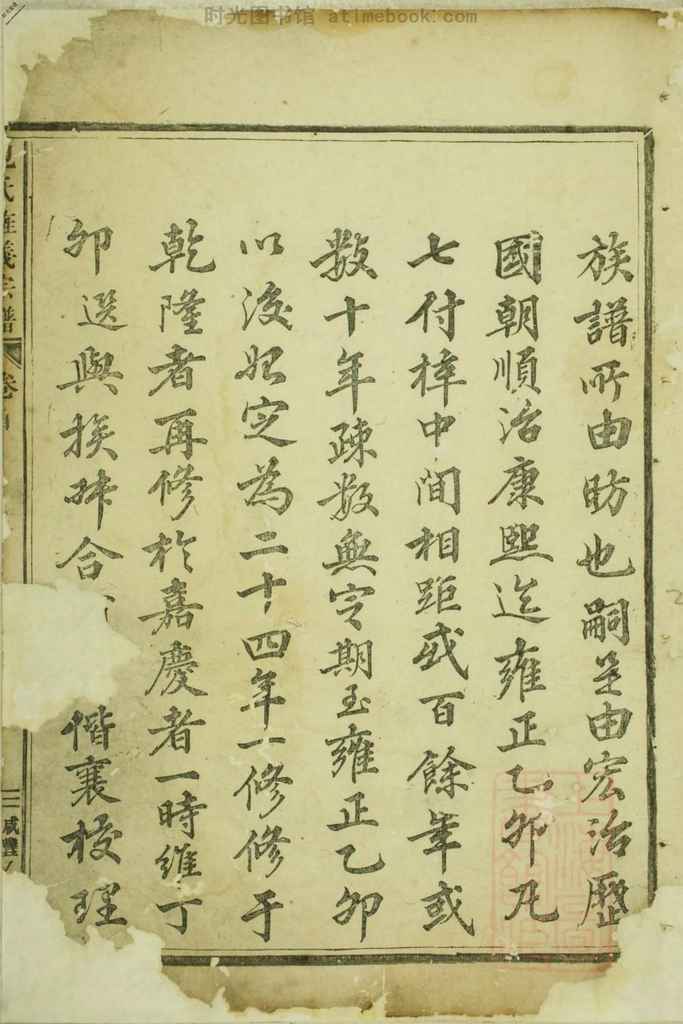 时光图书馆 atimebook.com
族譜所由昉也嗣是由宏治歷
國朝順治康熙迄雍正乙卯凡
七付梓中间相距或百餘年或
数十年疎数無定期至雍正乙卯
以後始定為二十四年一修修于
乾隆者再修於嘉慶者一時維丁
卯選與族 合
偕襄校理
氏 義宗譜
卷首
三
咸豐